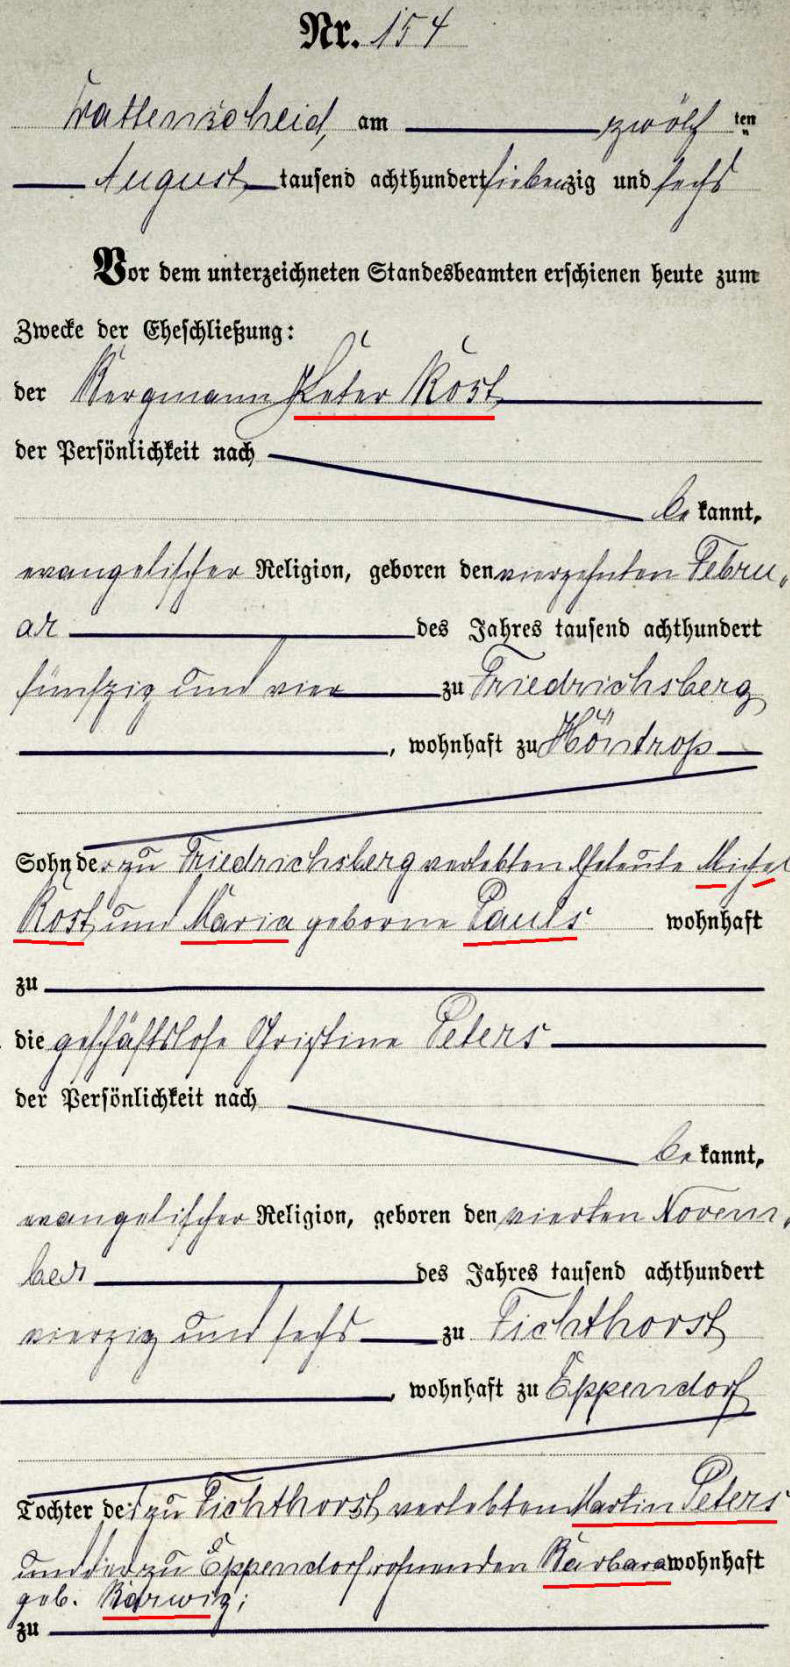 Nr. 154
Wattenscheid, am zwölf ten
August tausend achthundert siebenzig und sechs
Vor dem unterzeichneten Standesbeamten erschienen heute zum
Zwecke der Eheschließung:
der Bergmann Peter Kost
der Persönlichkeit nach
be kannt,
evangelischer Religion, geboren den vierzehnten Febru,
ar des Jahres tausend achthundert
fünfzig und vier zu Friedrichsberg
, wohnhaft zu Höntrop
Sohn der zu Friedrichsberg verlebten Eheleute Michel
Kost und Maria geborne Pauls wohnhaft
zu
die geschäftslose Christine Peters
der Persönlichkeit nach
be kannt,
evangelischer Religion, geboren den vierten Novem,
ber des Jahres tausend achthundert
vierzig und sechs zu Fichthorst
, wohnhaft zu Eppendorf
Tochter des zu Fichthorst verlebten Martin Peters
und der zu Eppendorf wohnenden Barbara wohnhaft
geb. Barwig;
zu